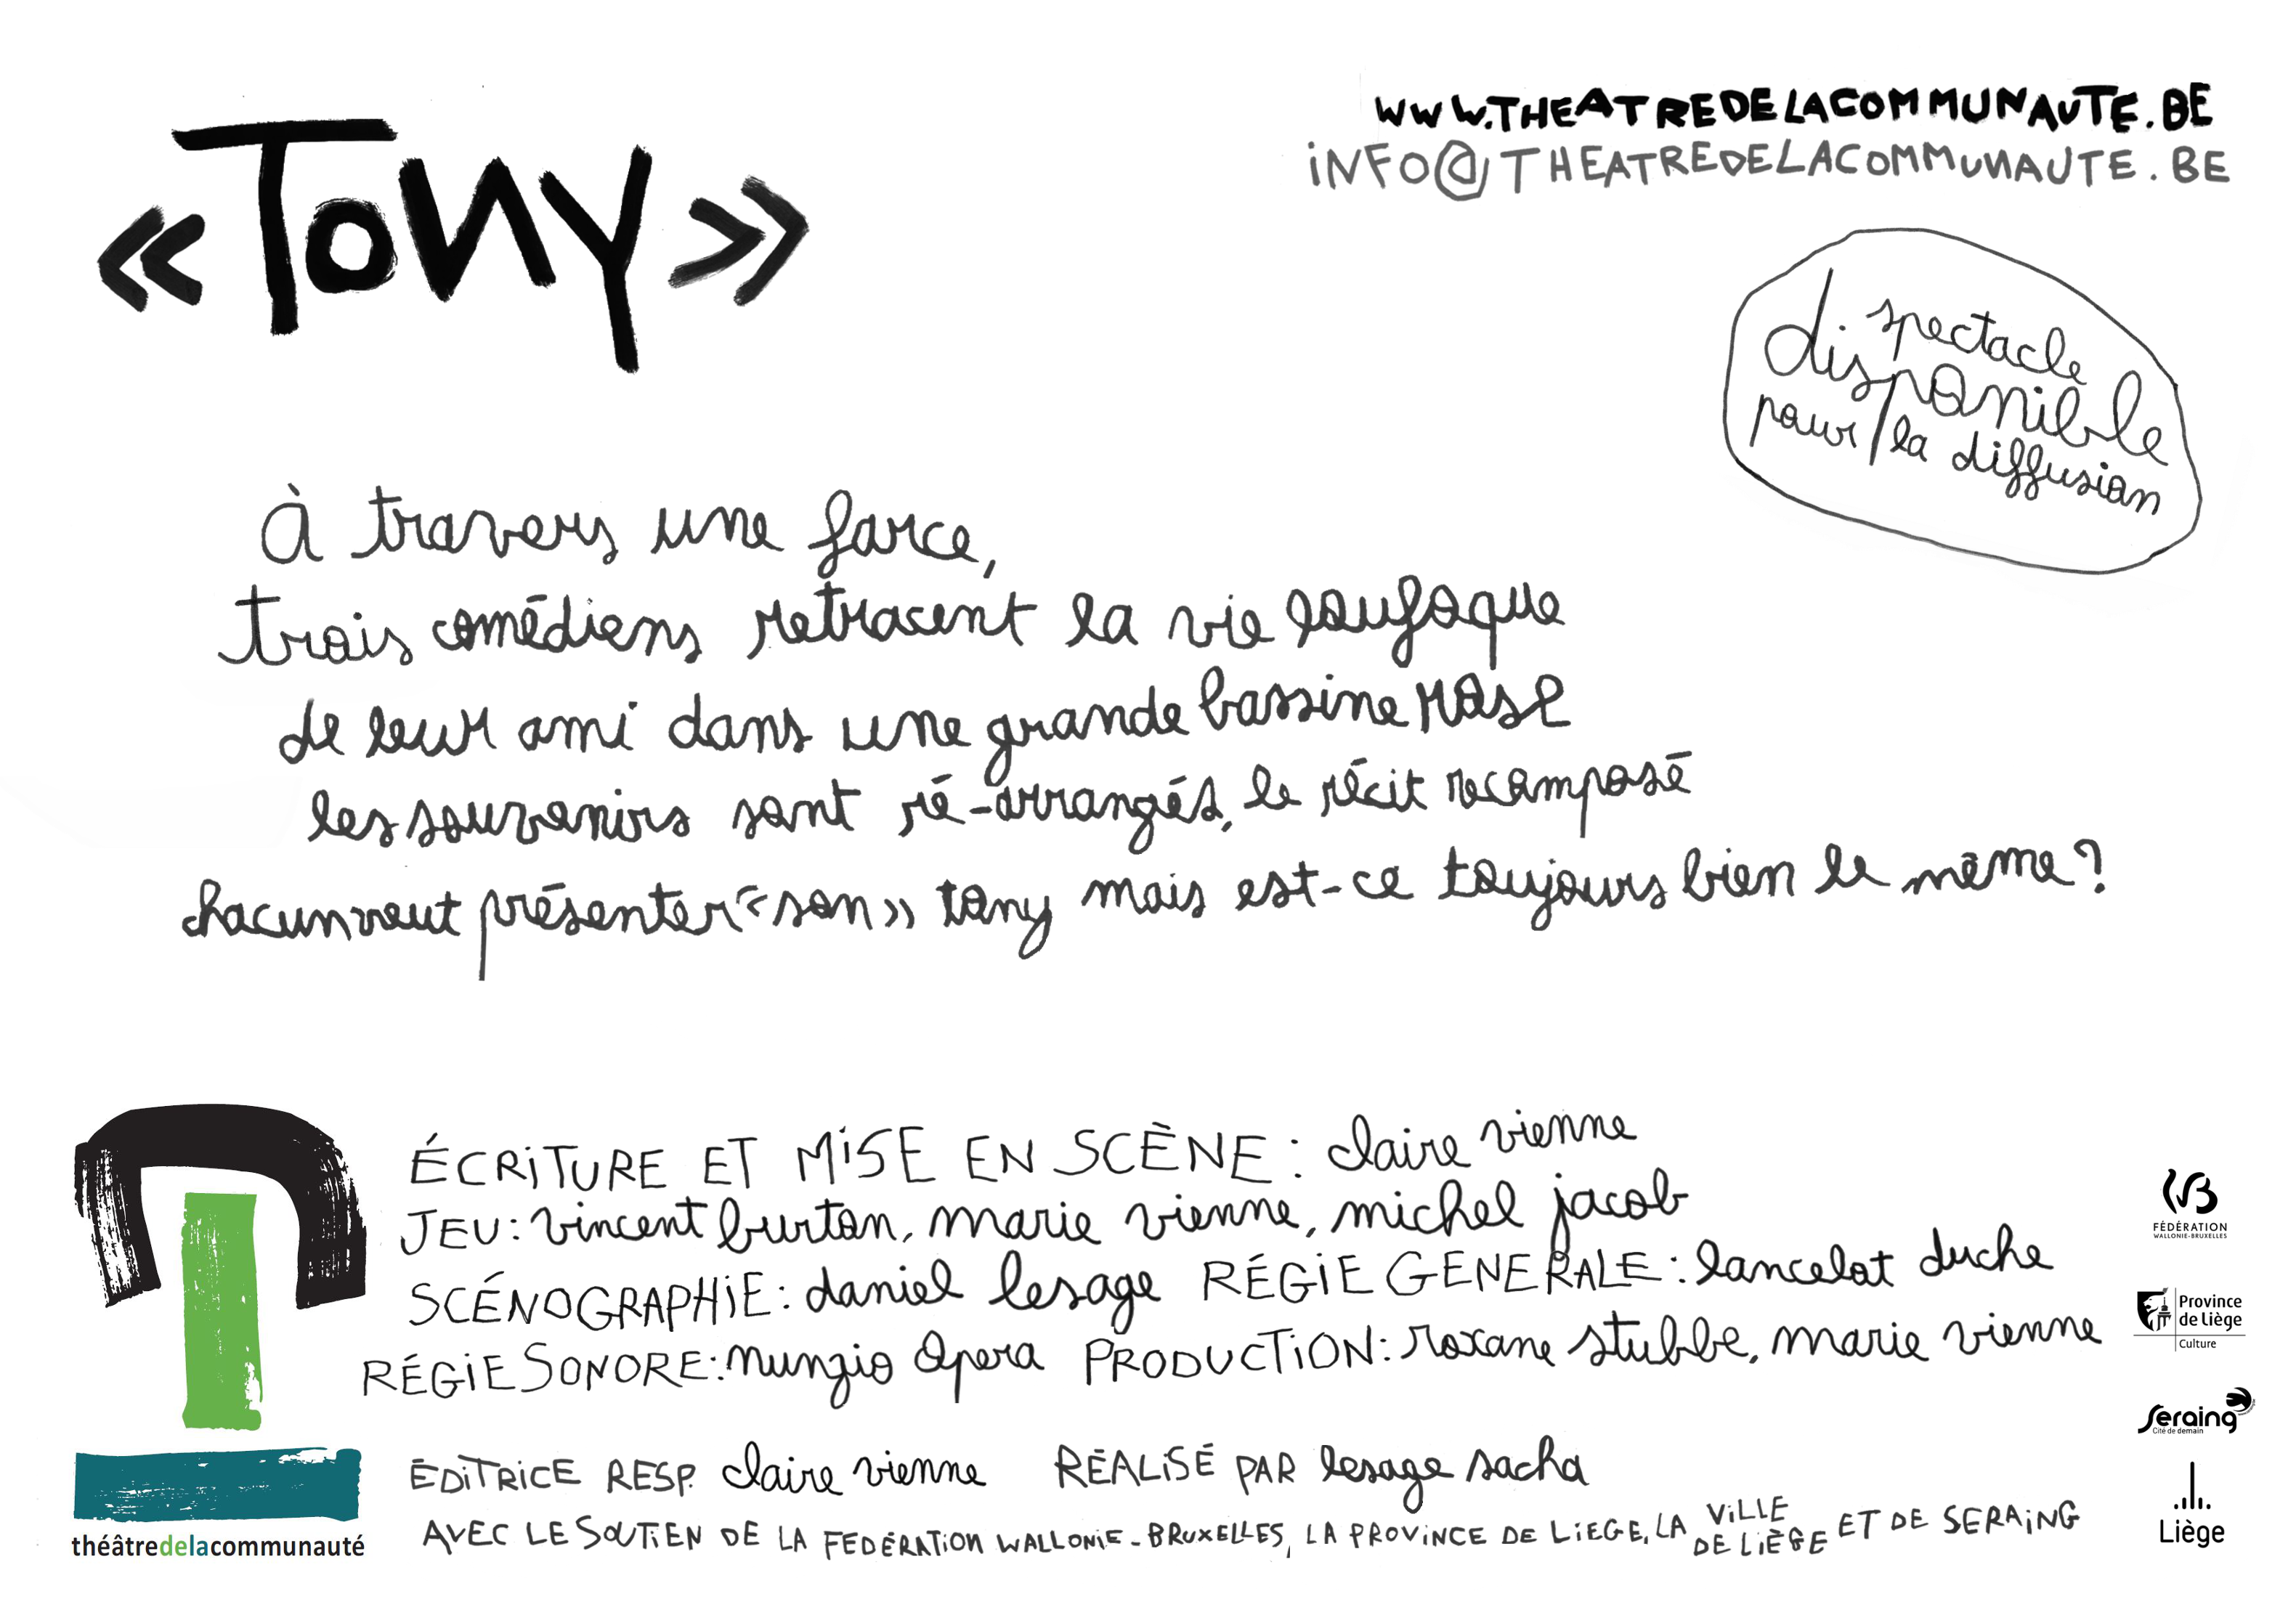 « Tony »
WWW.THEATREDELACOMMUNAUTE.BE
INFO@THEATREDELACOMMUNAUTE.BE
spectacle
disponible
pour la diffusion
À travers une farce,
trois comédiens retracent la vie loufoque
de leur ami dans une grande bassine rose
les souvenirs sont ré-arrangés, le récit recomposé
chacun veut présenter « son » tony mais est-ce toujours bien le même ?
ÉCRITURE ET MISE EN SCÈNE : claire vienne
JEU : vincent burton, marie vienne, michel jacob
SCÉNOGRAPHIE : daniel lesage RÉGIE GENERALE : lancelot duche
RÉGIE SONORE : nunzio Opera PRODUCTION : roxane stubbe, marie vienne
ÉDITRICE RESP. claire vienne RÉALISÉ PAR lesage sacha
AVEC LE SOUTIEN DE LA FEDÉRATION WALLONIE-BRUXELLES, LA PROVINCE DE LIEGE, LA VILLE DE LIÈGE ET DE SERAING
théâtredelacommunauté
FÉDÉRATION
WALLONIE-BRUXELLES
Province
de Liège
Culture
Seraing
Cité de demain
Liège